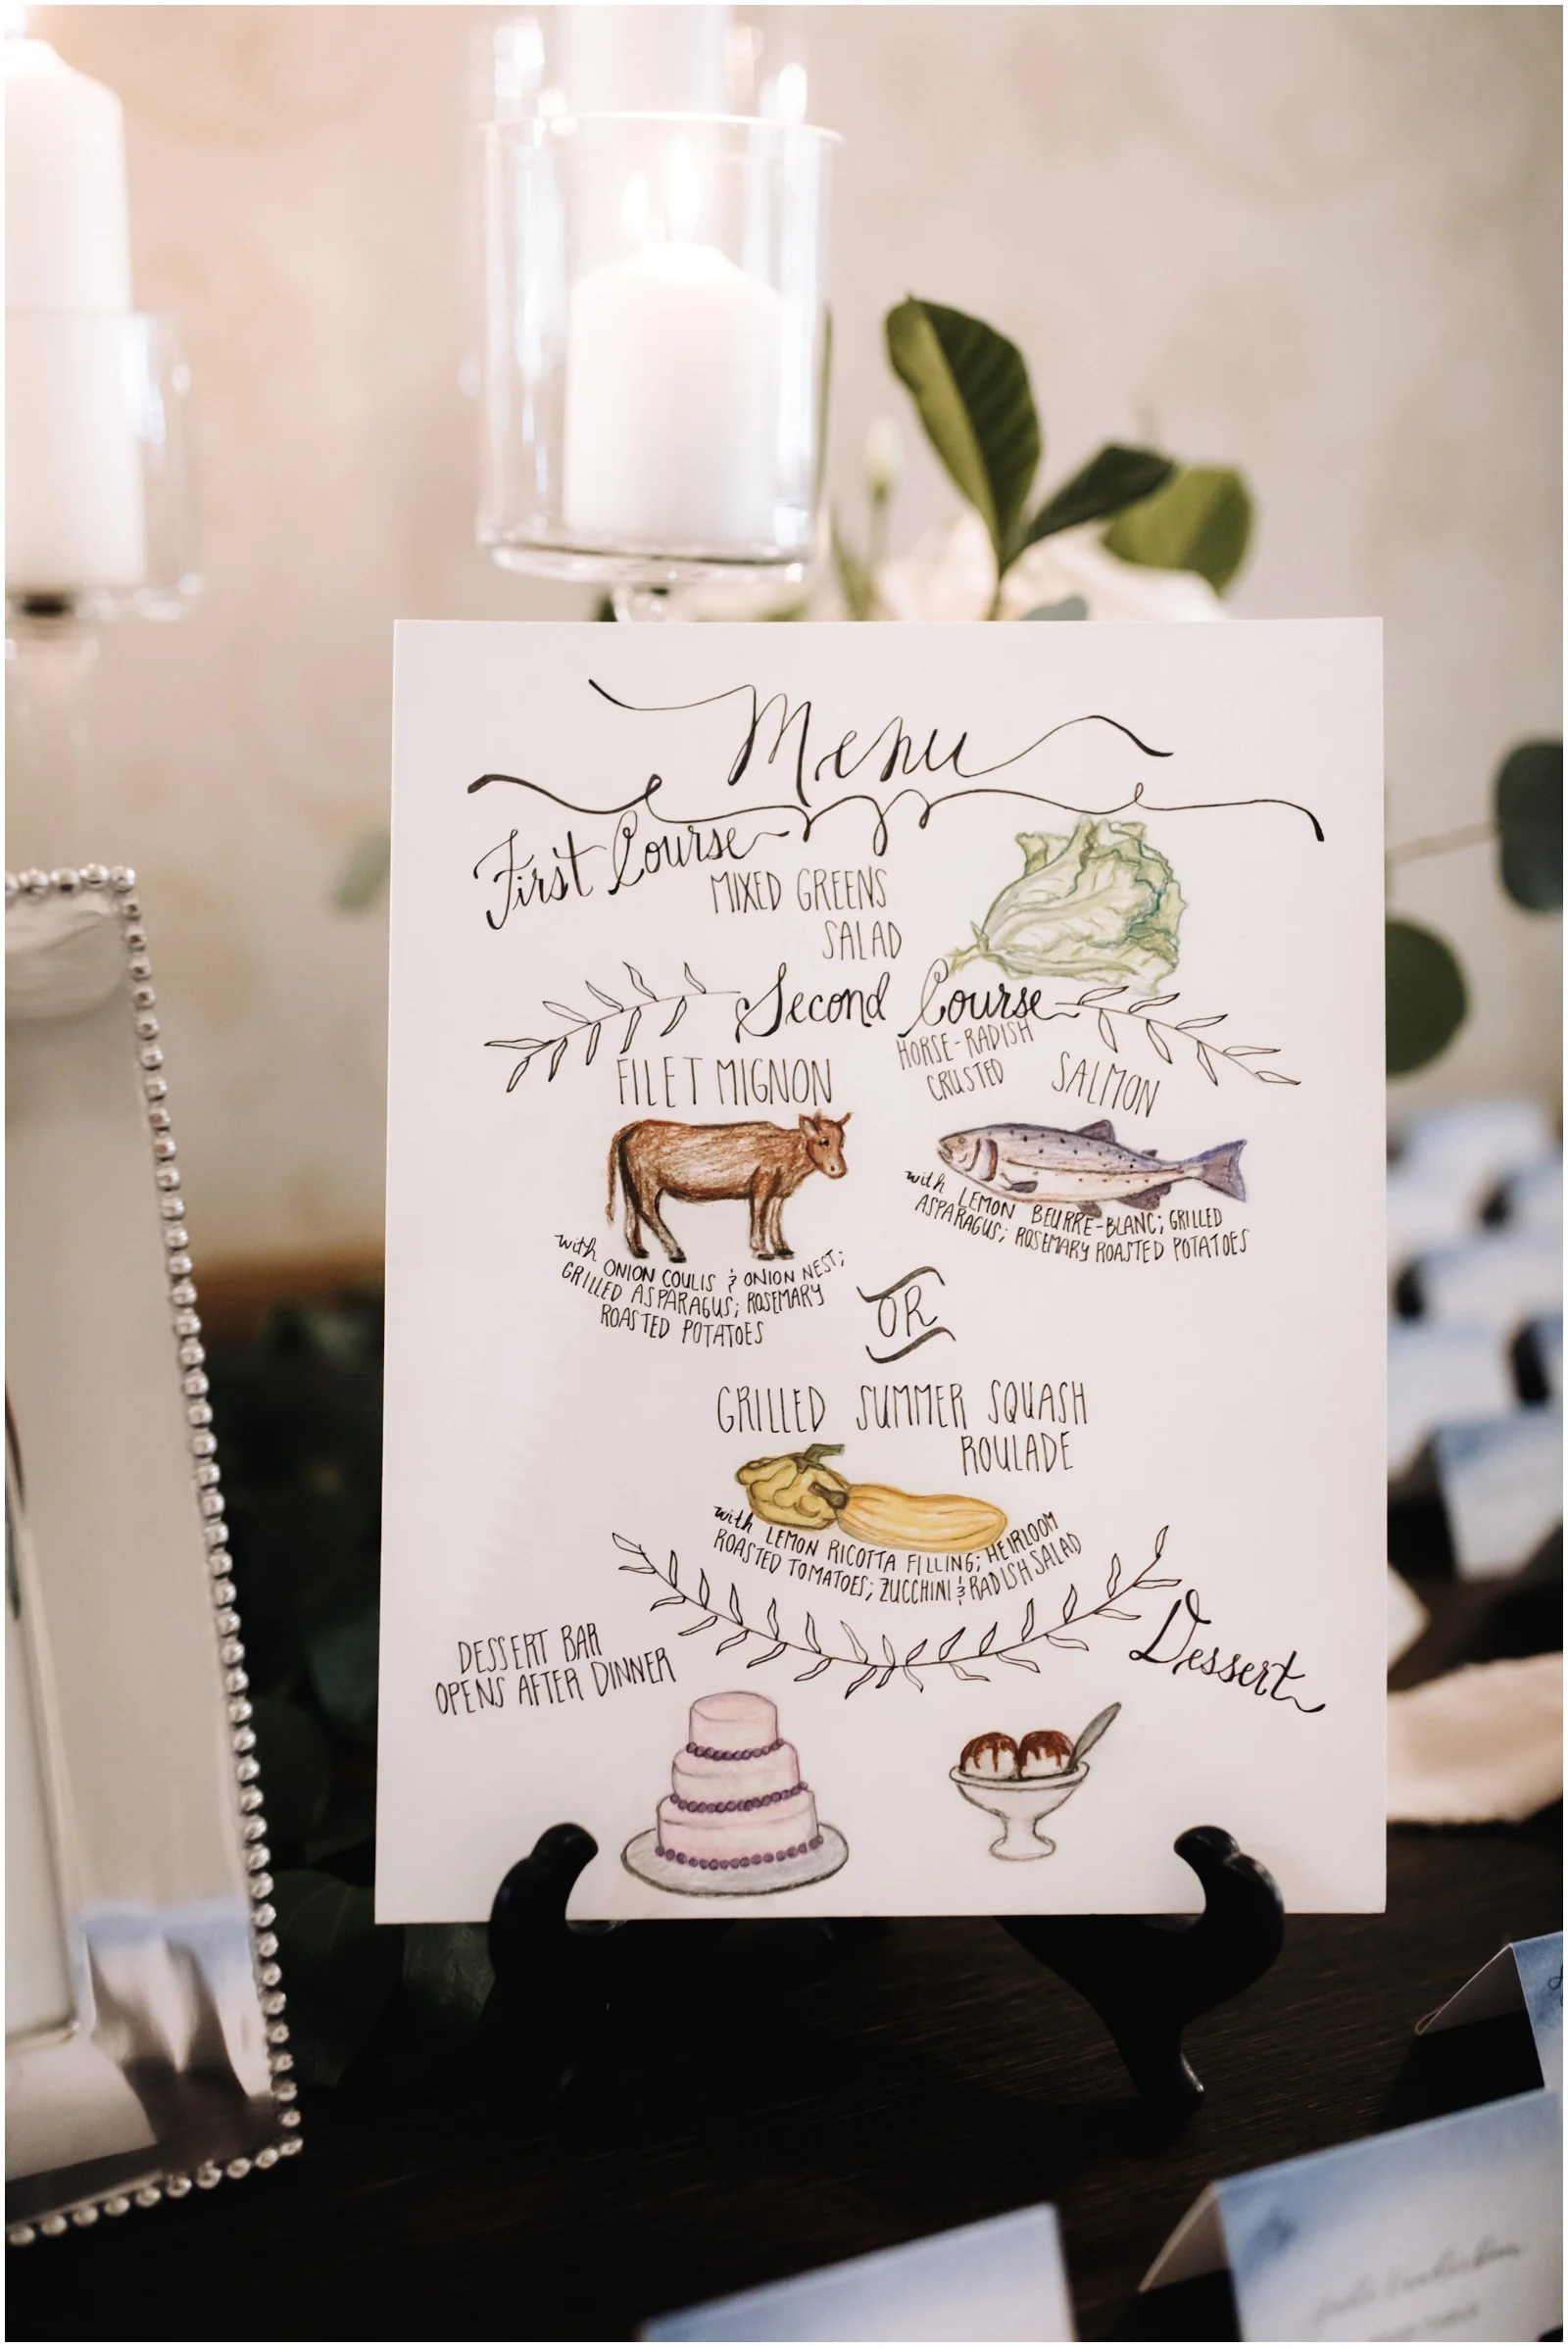 Menu
First Course
MIXED GREENS
SALAD
Second Course
FILET MIGNON
with ONION COULIS & ONION NEST;
GRILLED ASPARAGUS; ROSEMARY
ROASTED POTATOES
HORSE-RADISH
CRUSTED SALMON
with LEMON BEURRE-BLANC; GRILLED
ASPARAGUS; ROSEMARY ROASTED POTATOES
OR
GRILLED SUMMER SQUASH
ROULADE
with LEMON RICOTTA FILLING; HEIRLOOM
ROASTED TOMATOES; ZUCCHINI & RADISH SALAD
Dessert
DESSERT BAR
OPENS AFTER DINNER